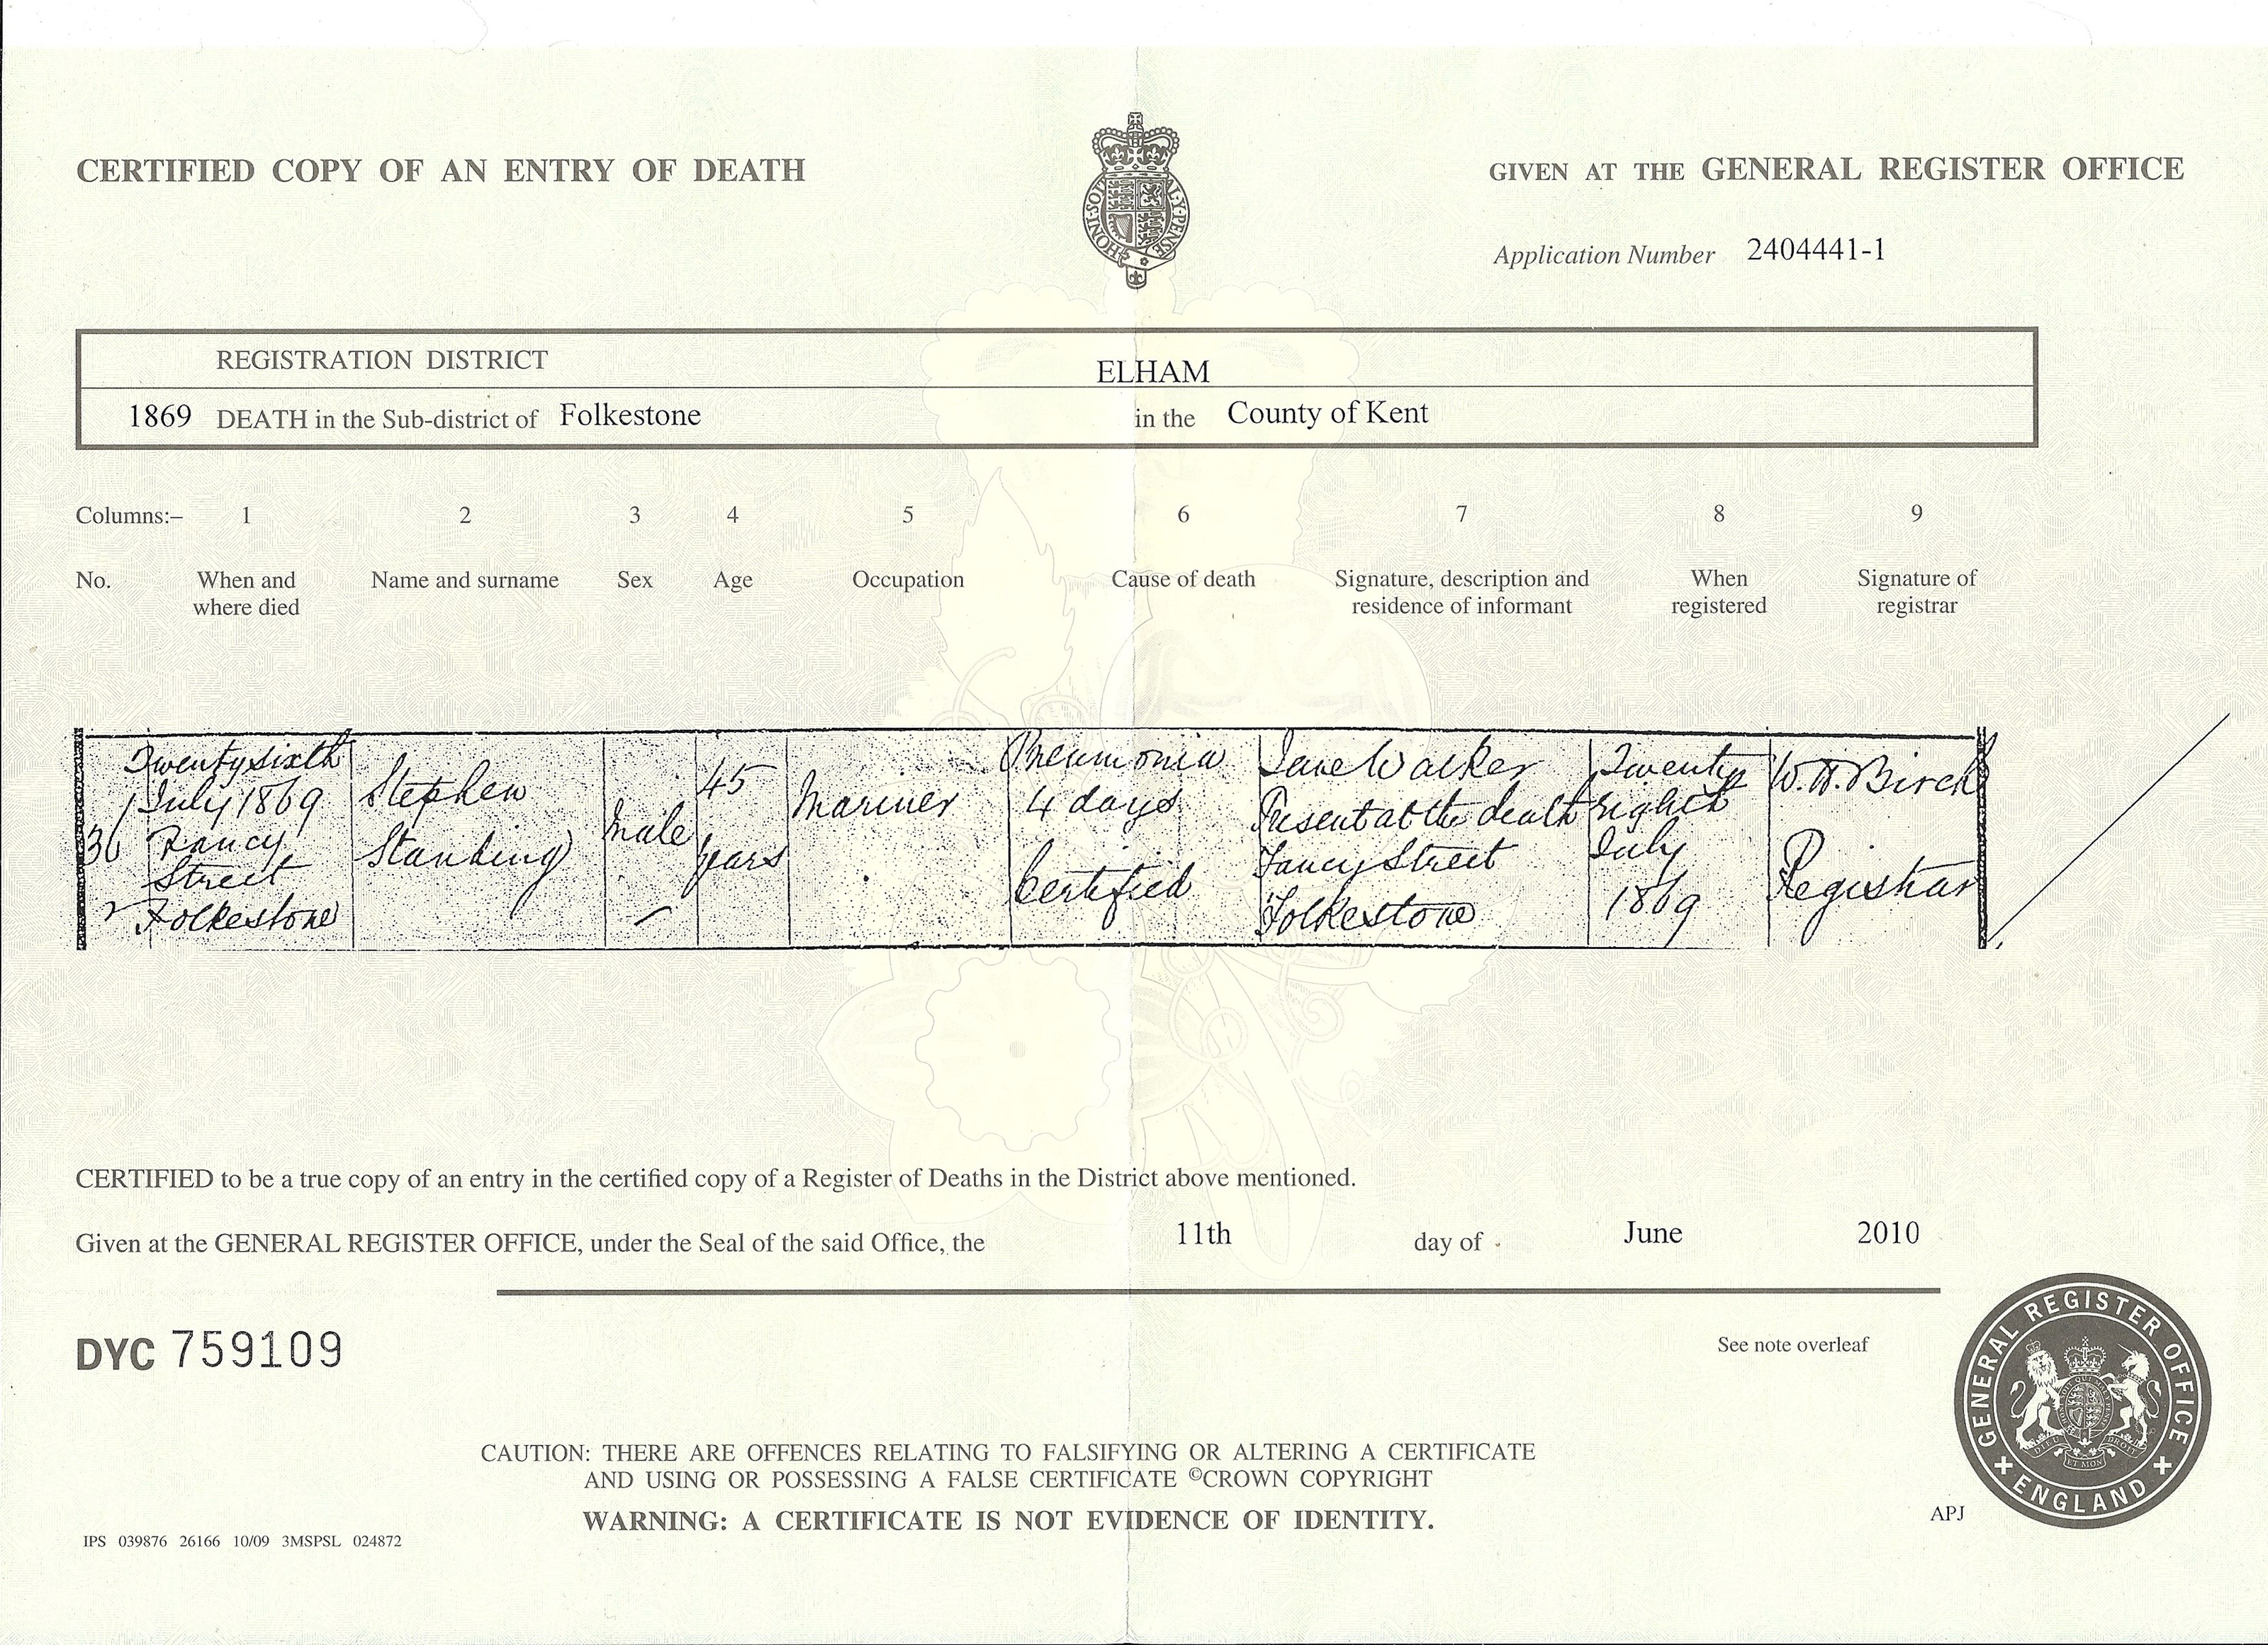 CERTIFIED COPY OF AN ENTRY OF DEATH
GIVEN AT THE GENERAL REGISTER OFFICE
HONI·SOI
LY·PENSE
Application Number 2404441-1
REGISTRATION DISTRICT ELHAM
1869 DEATH in the Sub-district of Folkestone in the County of Kent
Columns:– 1 2 3 4 5 6 7 8 9
No.
When and
where died
Name and surname
Sex
Age
Occupation
Cause of death
Signature, description and
residence of informant
When
registered
Signature of
registrar
36
Twenty sixth
July 1869
Fancy
Street
Folkestone
Stephen
Standing
Male
45
years
Mariner
Pneumonia
4 days
Certified
Jane Walker
Present at the death
Fancy Street
Folkestone
Twenty
eighth
July
1869
W.H. Birch
Registrar
CERTIFIED to be a true copy of an entry in the certified copy of a Register of Deaths in the District above mentioned.
Given at the GENERAL REGISTER OFFICE, under the Seal of the said Office, the 11th day of June 2010
DYC 759109
See note overleaf
CAUTION: THERE ARE OFFENCES RELATING TO FALSIFYING OR ALTERING A CERTIFICATE
AND USING OR POSSESSING A FALSE CERTIFICATE ©CROWN COPYRIGHT
WARNING: A CERTIFICATE IS NOT EVIDENCE OF IDENTITY.
IPS 039876 26166 10/09 3MSPSL 024872
APJ
GENERAL REGISTER OFFICE
ENGLAND
DIEU ET MON DROIT